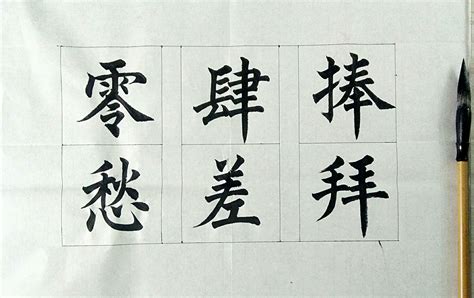 零肆捧
愁差拜